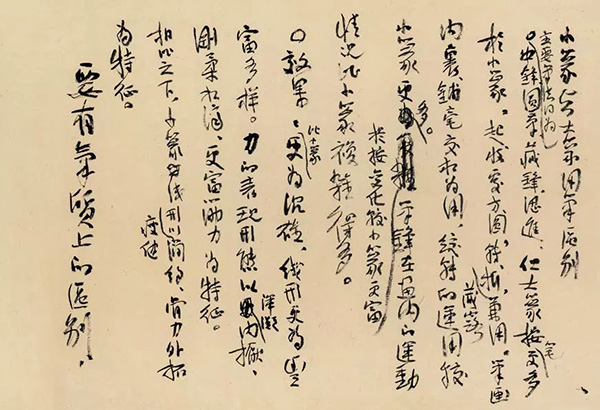 小篆与大篆用笔区别
主要笔法同为
○中锋圆笔藏锋涩进、但大篆按笔更多
於小篆。起收更方圆、转折兼用。笔画
藏露
内裹、铺毫交相为用,绞转的运用较
小篆更多。笔锋在画内的运动
提按变化较小篆更富
情况比小篆複杂得多。
○效果:比小篆更为沉雄、线形更为丰
富多样。力的表现形态以内擫、浑凝
刚柔相济、更富筋力为特征。
相比之下、小篆的线形以简约、骨力外拓
瘦健
为特征。
要有气质上的区别,